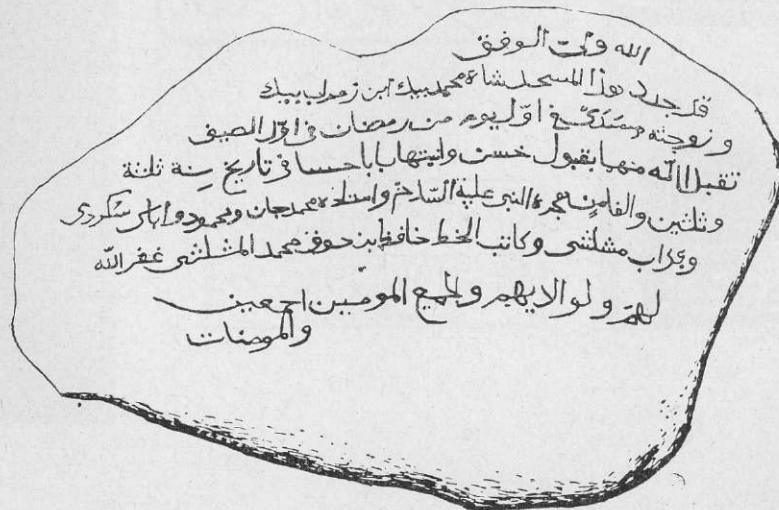 الله ولى الوفق
قد جدد هذا المسجد شاه محمد بيك ابن زهراب بيك
و زوجته فى اول يوم من رمضان فى اول الصيف
تقبل الله منهما بقبول حسن واثيتهاب باحسا فى تاريخ سنة ثلثة
وثلثين والف من هجرة النبى عليه السلام واستاده محمد جان ومحمود
ومحراب مشلشى وكاتب الخط حافظ ابن محمد المشلشى غفر الله
لهم ولوالاديهم ولجميع المومنين اجمعين
والمومنات